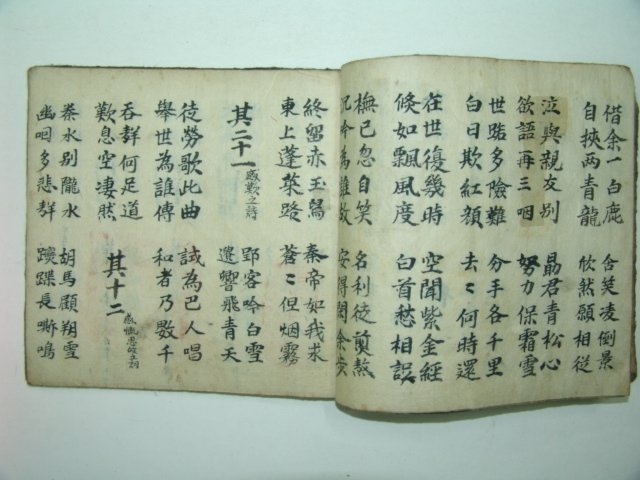 借余一白鹿
自挾兩青龍
含笑凌倒景
欣然願相從
泣與親友別
欲語再三咽
勗君青松心
努力保霜雪
世路多險難
白日欺紅顔
分手各千里
去〻何時還
在世復幾時
倏如飄風度
空聞紫金經
白首愁相誤
撫已忽自笑
沉吟為誰故
名利徒煎熬
安得閑余步
終留赤玉舄
東上蓬萊路
秦帝如我求
蒼〻但烟霧
其二十一 感歎之詩
郢客吟白雪
遺響飛青天
徒勞歌此曲
舉世為誰傳
試為巴人唱
和者乃數千
吞聲何足道
歎息空凄然
其十二
秦水別隴水
幽咽多悲聲
胡馬顧朔雪
躞蹀長嘶鳴